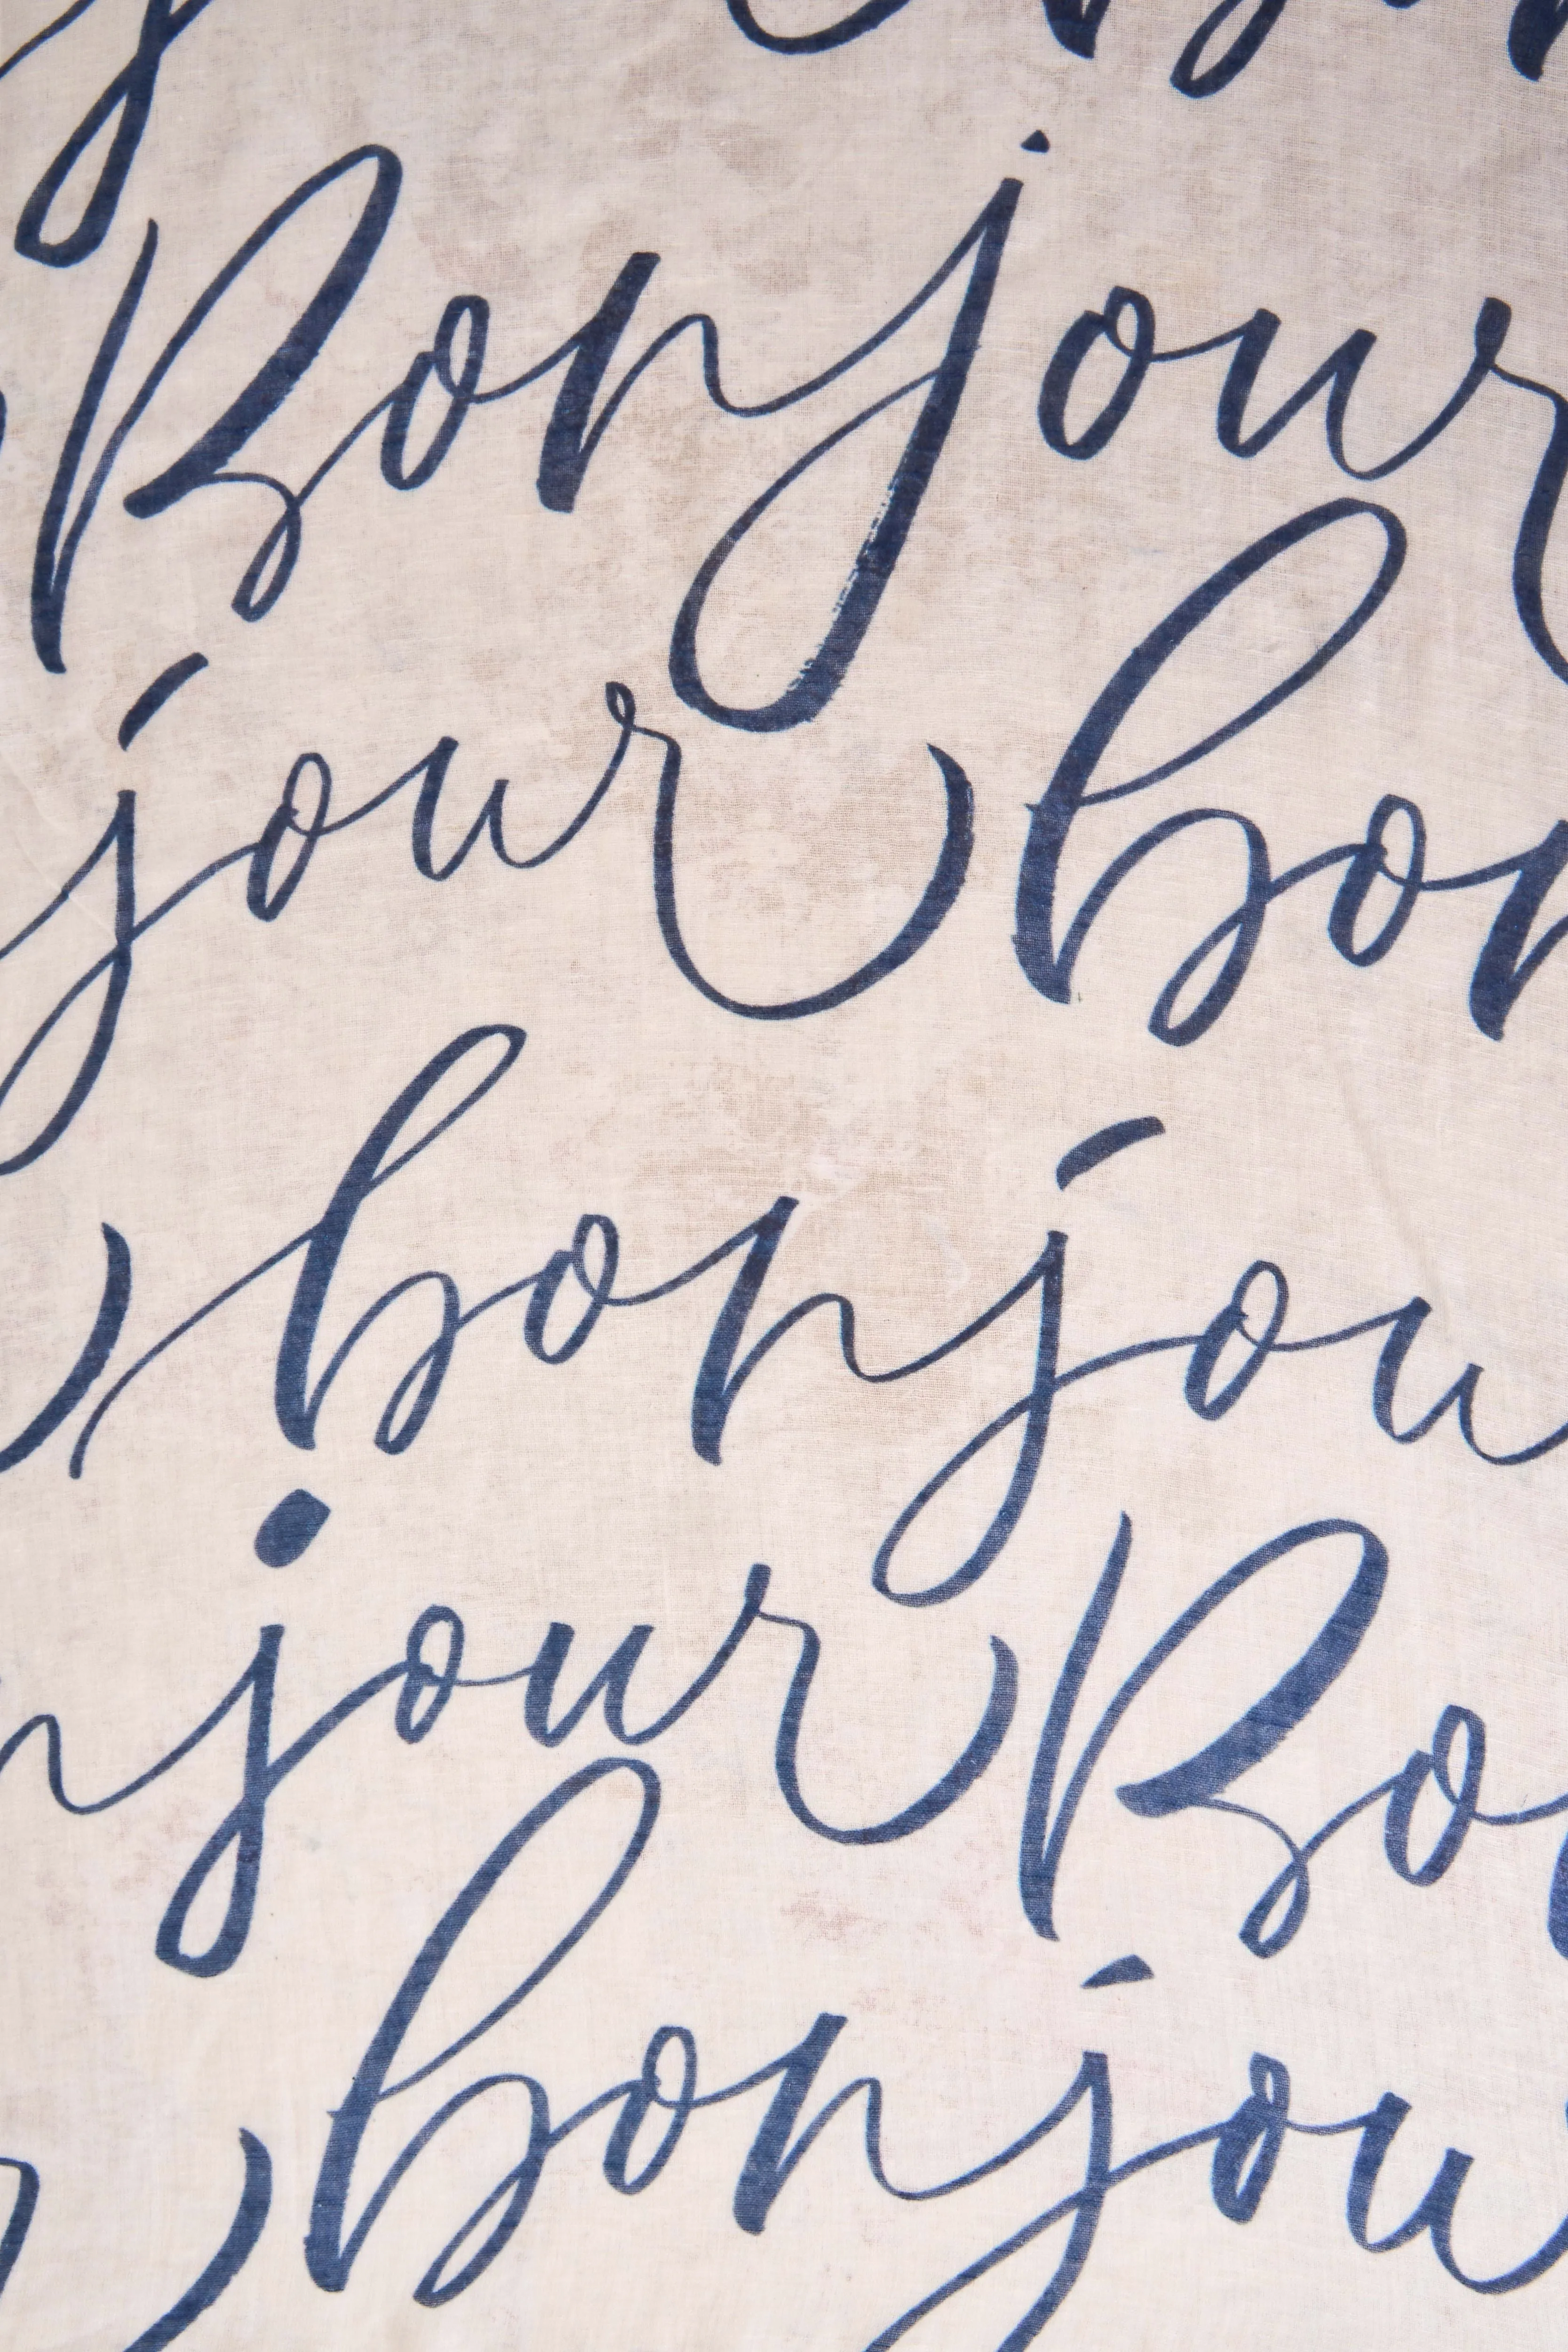 Bonjour
jour bon
bonjou
njour Bo
bonjou